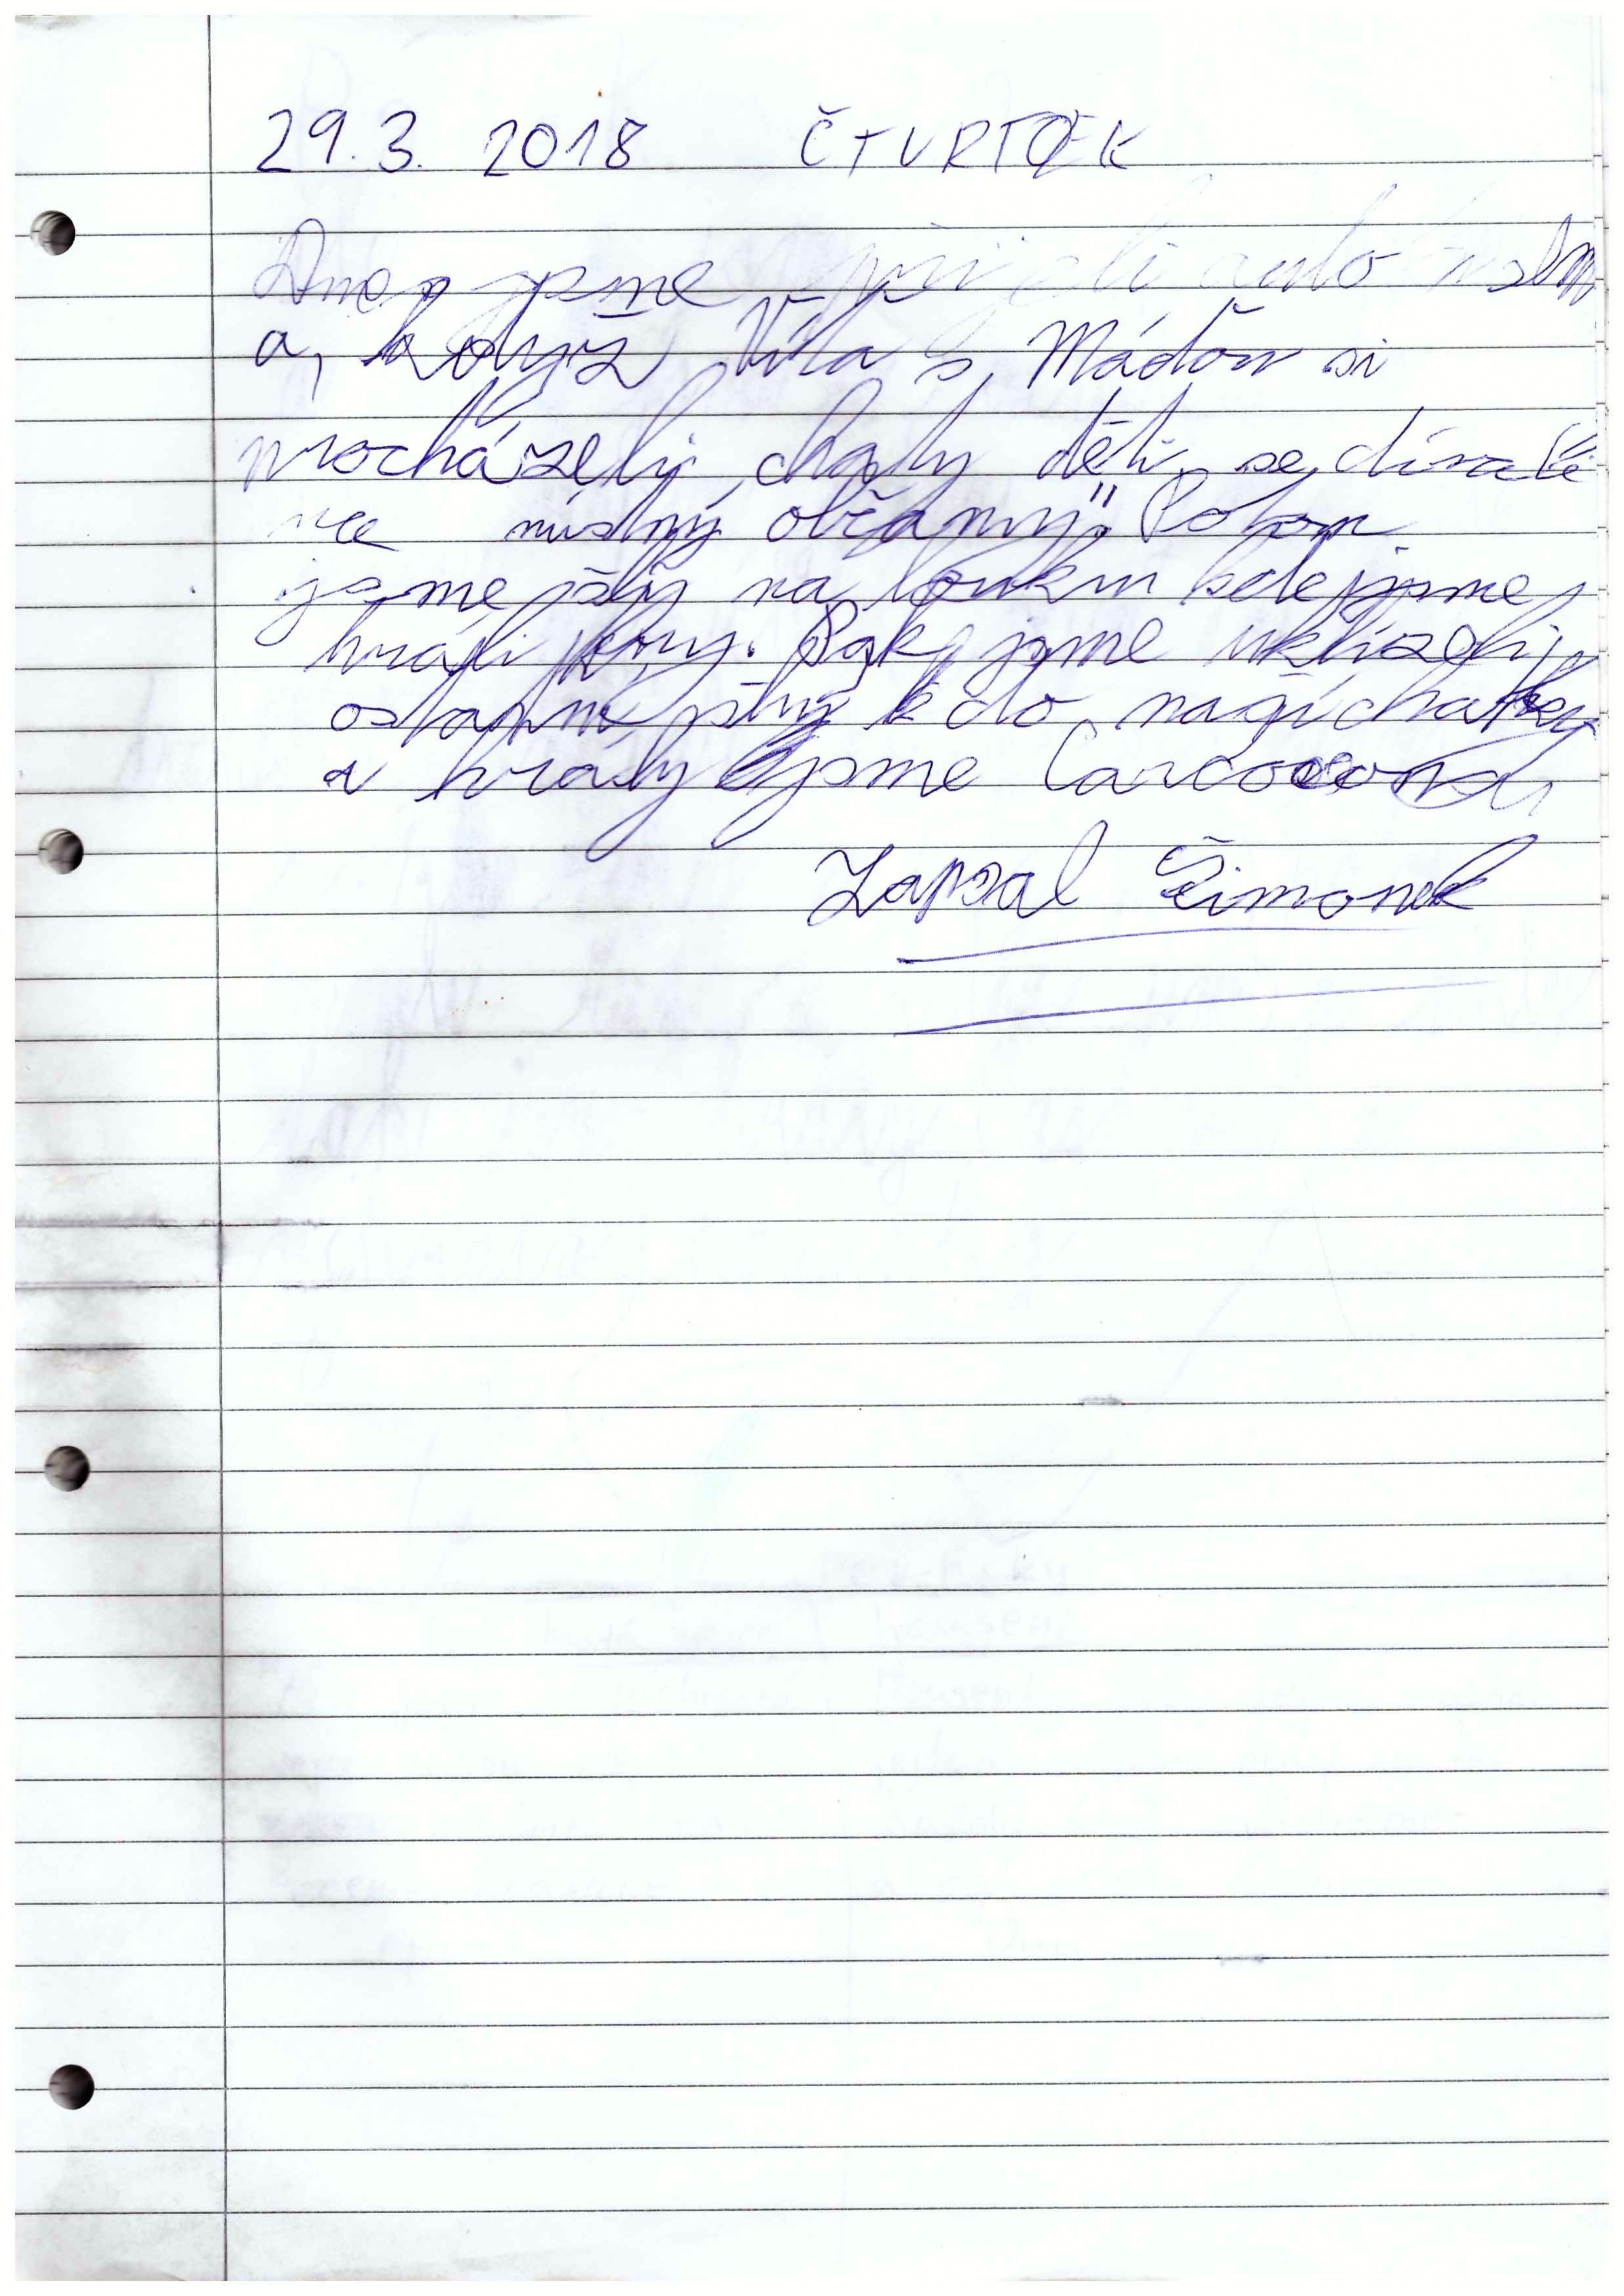 29.3. 2018 ČTVRTEK
Dnes jsme přijeli auto
a, když Víťa s Máďou si
procházeli chaty děti se dívali
na místný občany". Potom
jsme jšly na louku kde jsme
hráli hry. Pak jsme uklízeli
ostatní jsly k do naší chatky
a hrály jsme Carcosona
Zapsal Šimonek